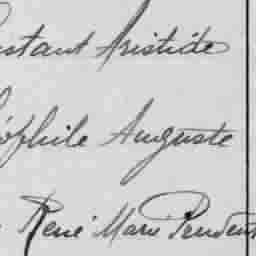 nstant Aristide
éophile Auguste
René Marie Prudent